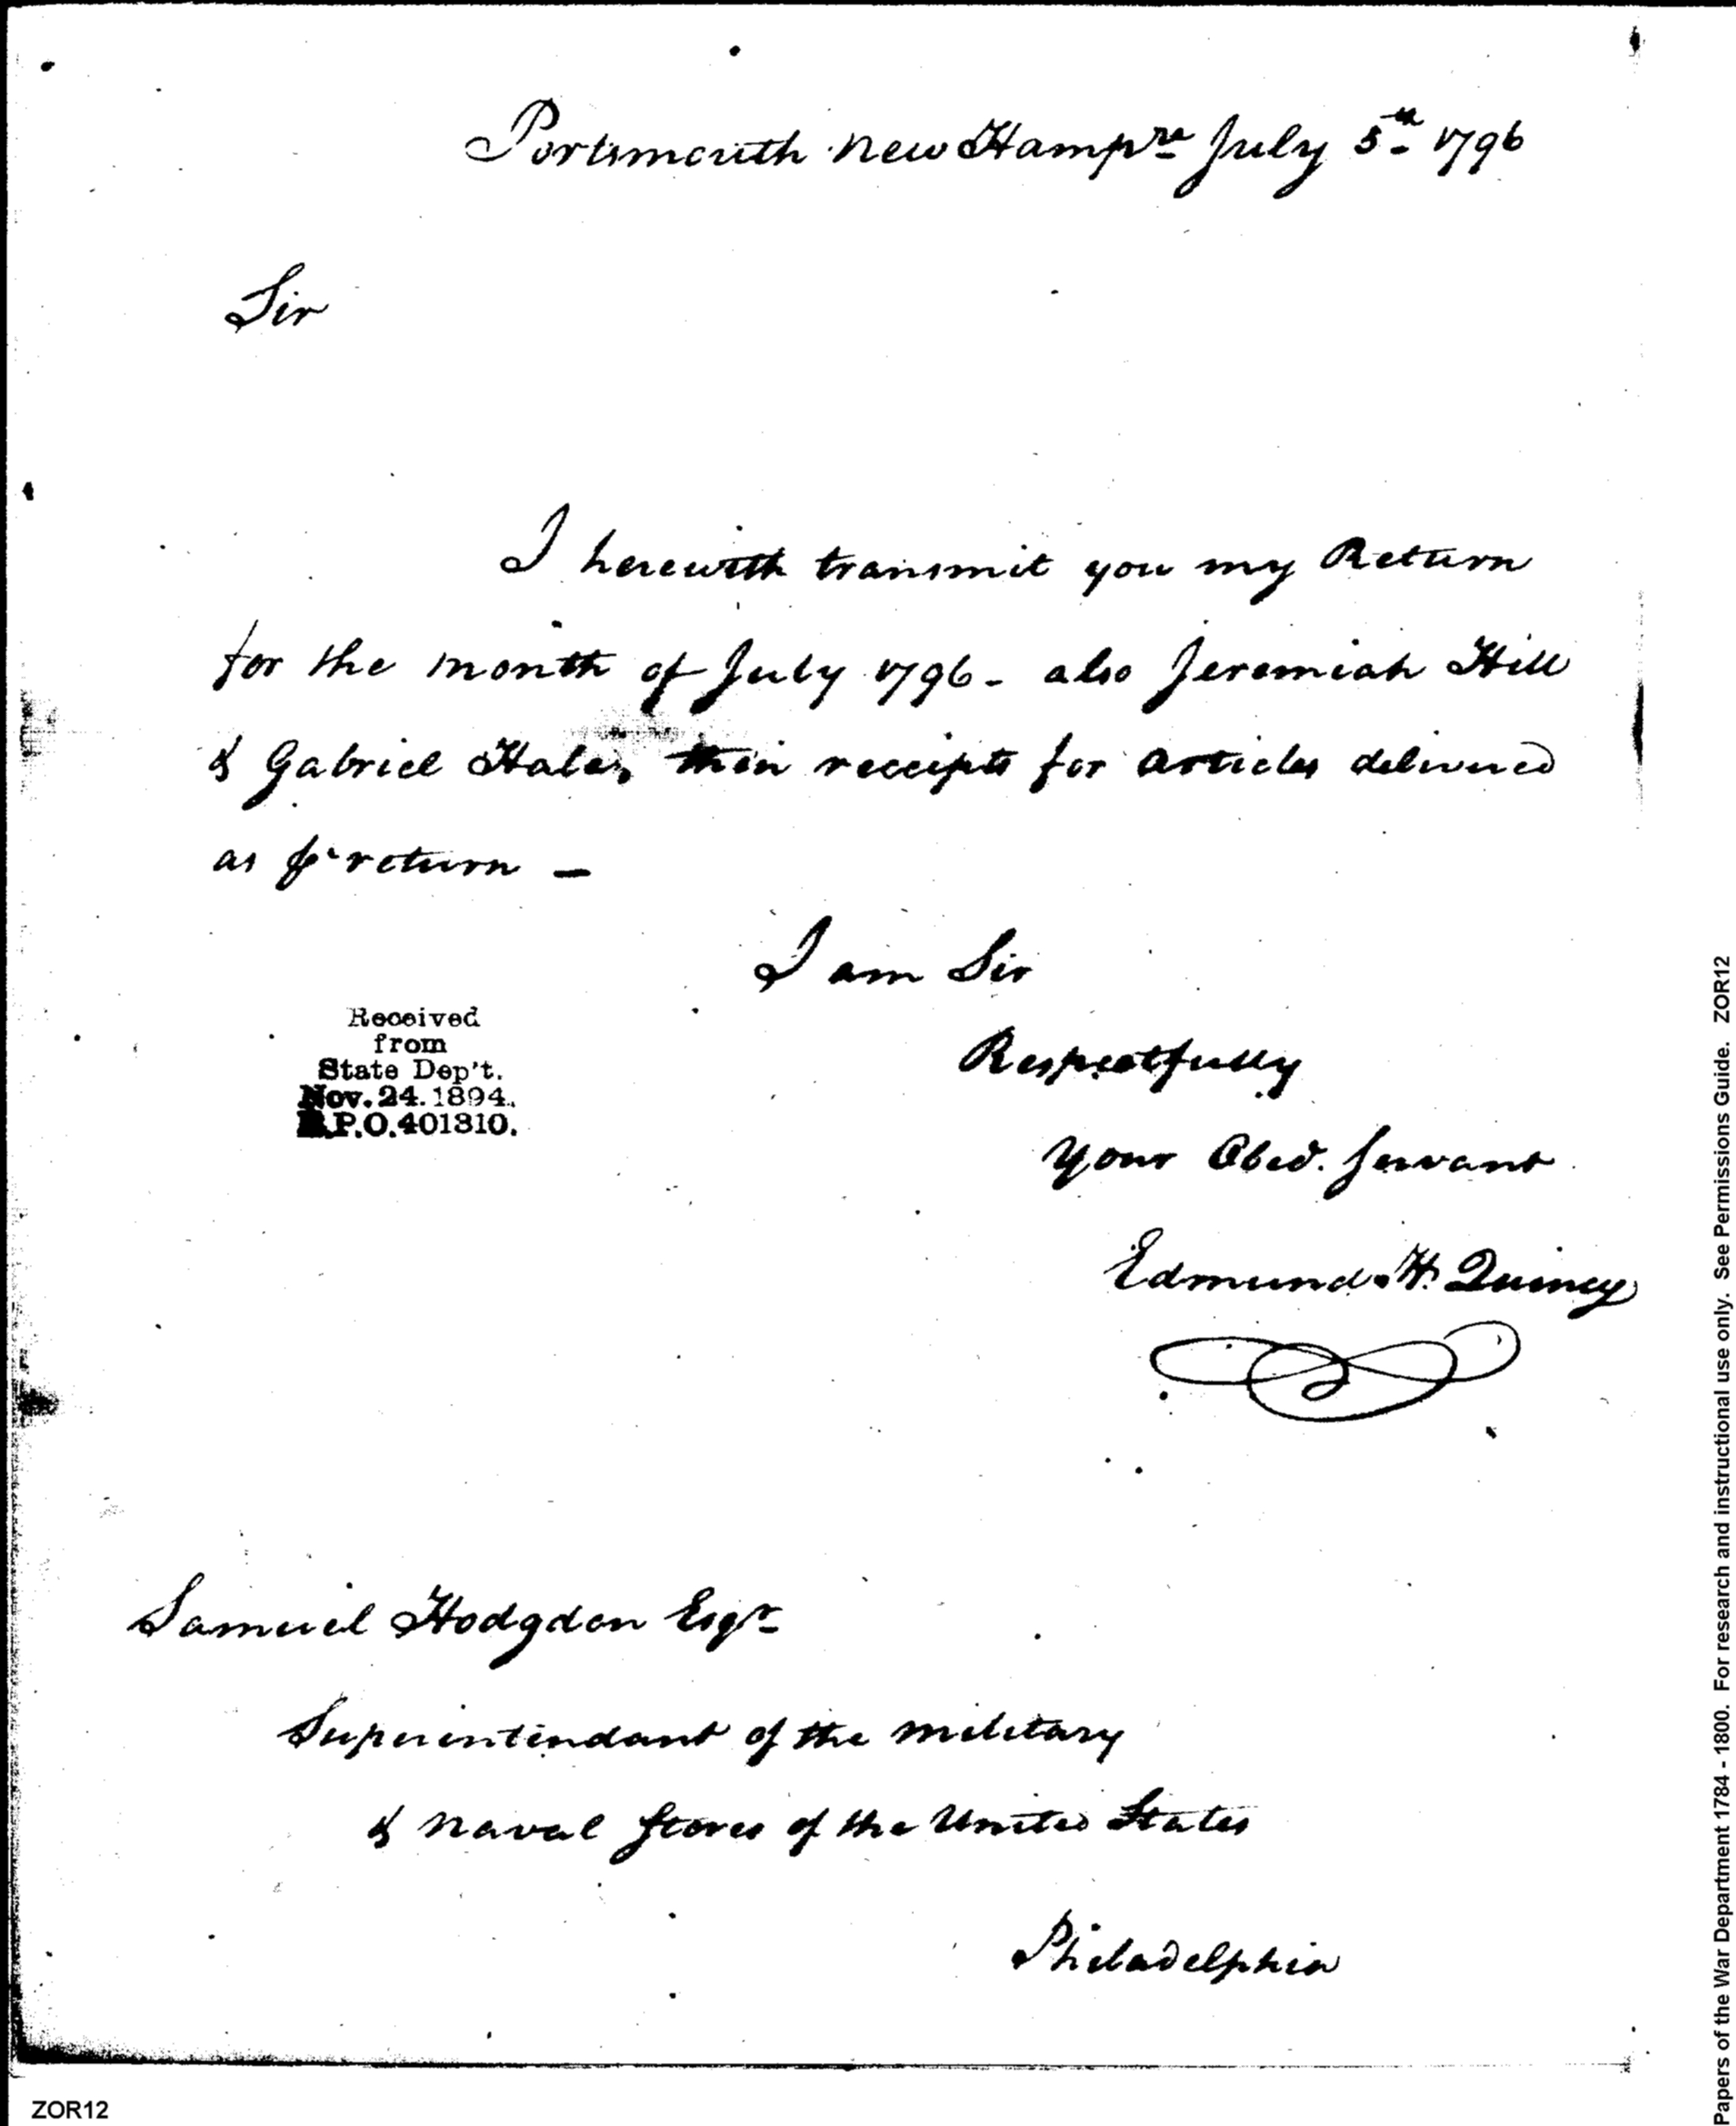 Portsmouth New Hampre July 5th 1796
Sir
I herewith transmit you my Return
for the month of July 1796 - also Jeremiah Hill
& Gabriel Hales, their receipts for articles delivered
as pr return -
I am Sir
Received
from
State Dep't.
Nov. 24. 1894.
R.P.O. 401310.
Respectfully
Your Obed. Servant
Edmund H. Quincy
Samuel Hodgdon Esqr
Superintendant of the military
& naval Stores of the United States
Philadelphia
ZOR12
Papers of the War Department 1784 - 1800. For research and instructional use only. See Permissions Guide. ZOR12